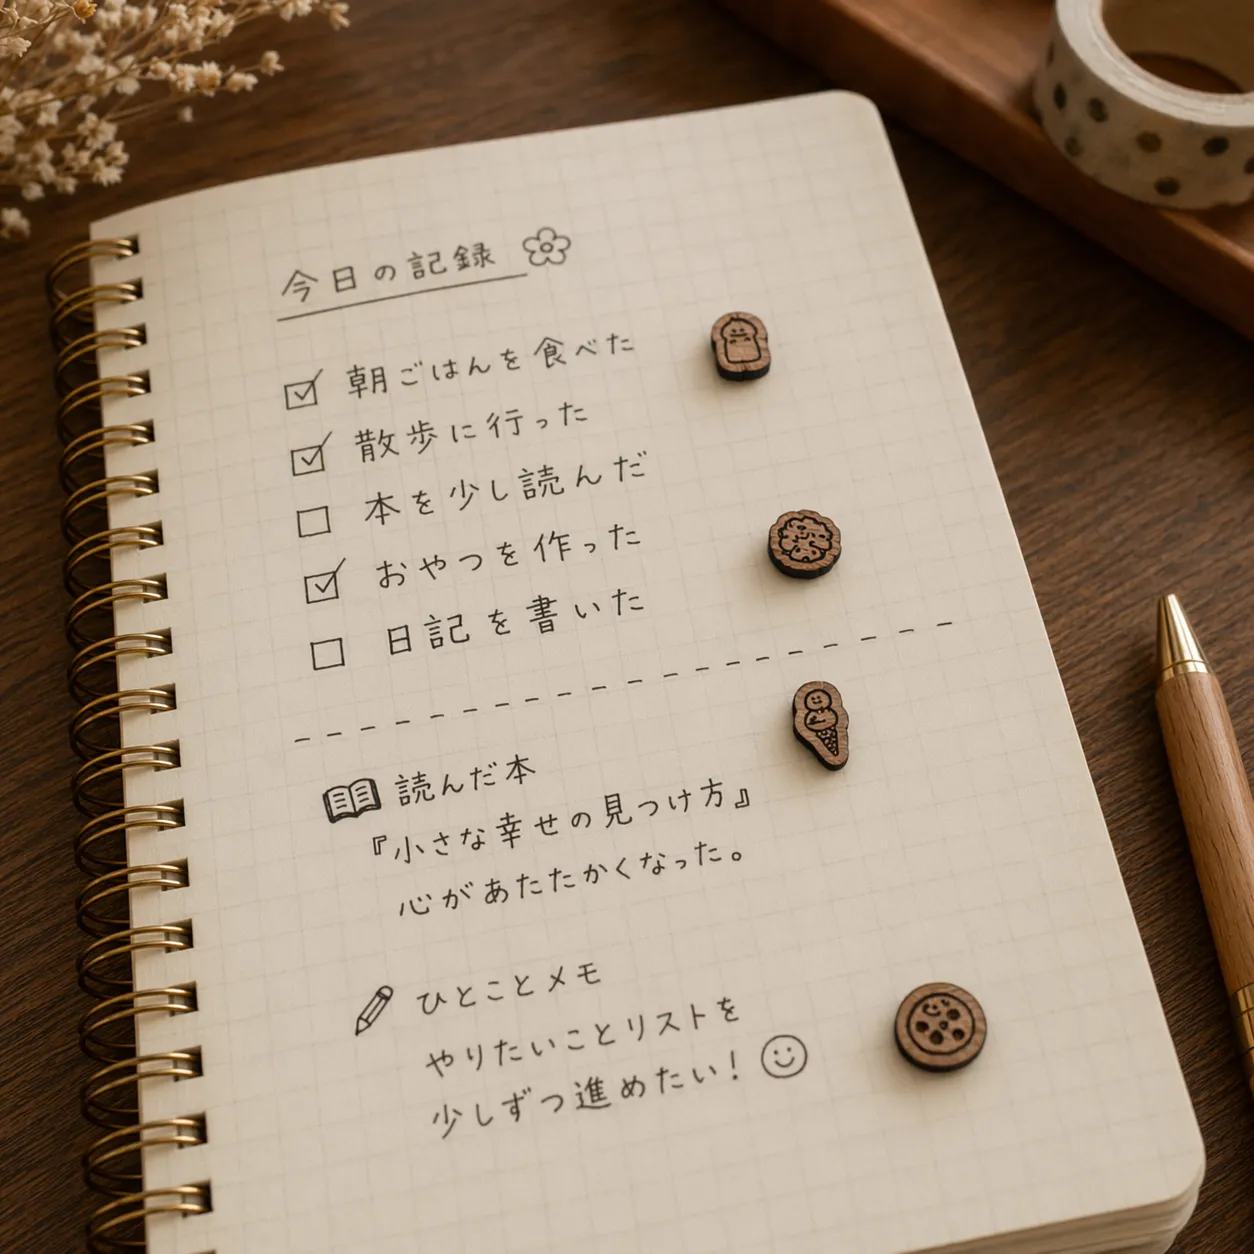 今日の記録
朝ごはんを食べた
散歩に行った
本を少し読んだ
おやつを作った
日記を書いた
読んだ本
『小さな幸せの見つけ方』
心があたたかくなった。
ひとことメモ
やりたいことリストを
少しずつ進めたい！